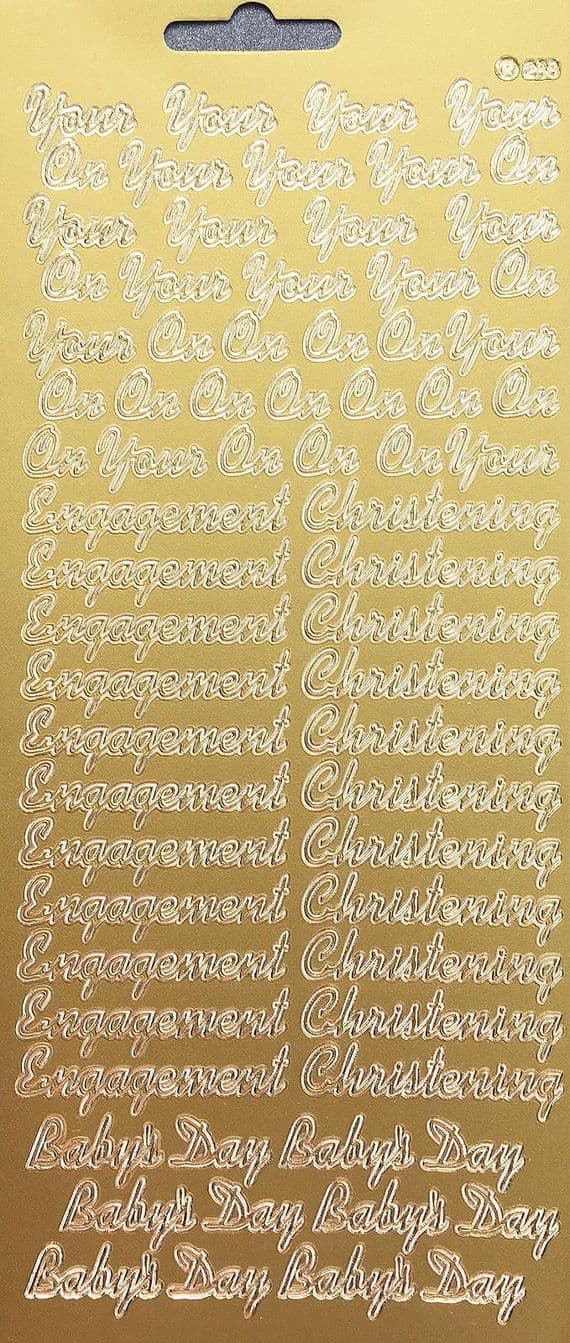 R 248
Your Your Your Your
On Your Your Your On
Your Your Your Your
On Your Your Your On
Your On On On On Your
On On On On On On On
On Your On On On Your
Engagement Christening
Engagement Christening
Engagement Christening
Engagement Christening
Engagement Christening
Engagement Christening
Engagement Christening
Engagement Christening
Engagement Christening
Engagement Christening
Engagement Christening
Baby's Day Baby's Day
Baby's Day Baby's Day
Baby's Day Baby's Day